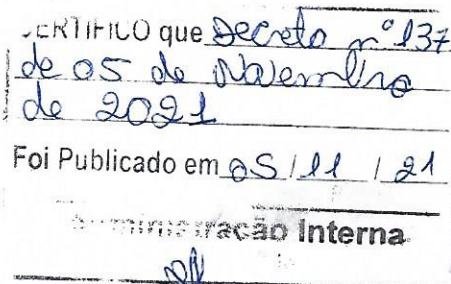 CERTIFICO que Decreto nº 137
de 05 de Novembro
de 2021
Foi Publicado em 05/11/21
Administração Interna